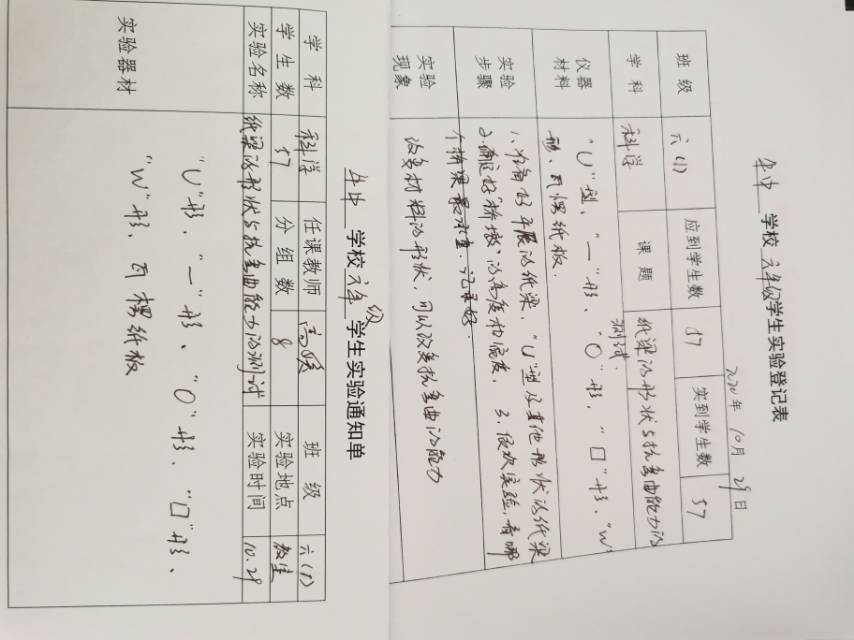 学校六年级学生实验登记表
2020年10月29日
班级 六(1) 应到学生数 57 实到学生数 57
学科 科学 课题 纸梁的形状与抗弯曲能力的
测试
仪器材料 “U”型、“一”形、“O”形、“口”形、“W”
形、瓦楞纸板.
实验步骤 1、准备好平展的纸梁,“U”型及其他形状的纸梁
2、确定好“桥墩”的高度和宽度, 3、依次实验,看哪
个桥梁最承重,记录好.
实验现象 改变材料的形状,可以改变抗弯曲的能力
学校六年级学生实验通知单
学科 科学 任课教师 班级 六(1)
学生数 57 分组数 8 实验地点 教室
实验名称 纸梁的形状与抗弯曲能力的测试 实验时间 10.29
实验器材 “U”形、“一”形、“O”形、“口”形、
“W”形、瓦楞纸板